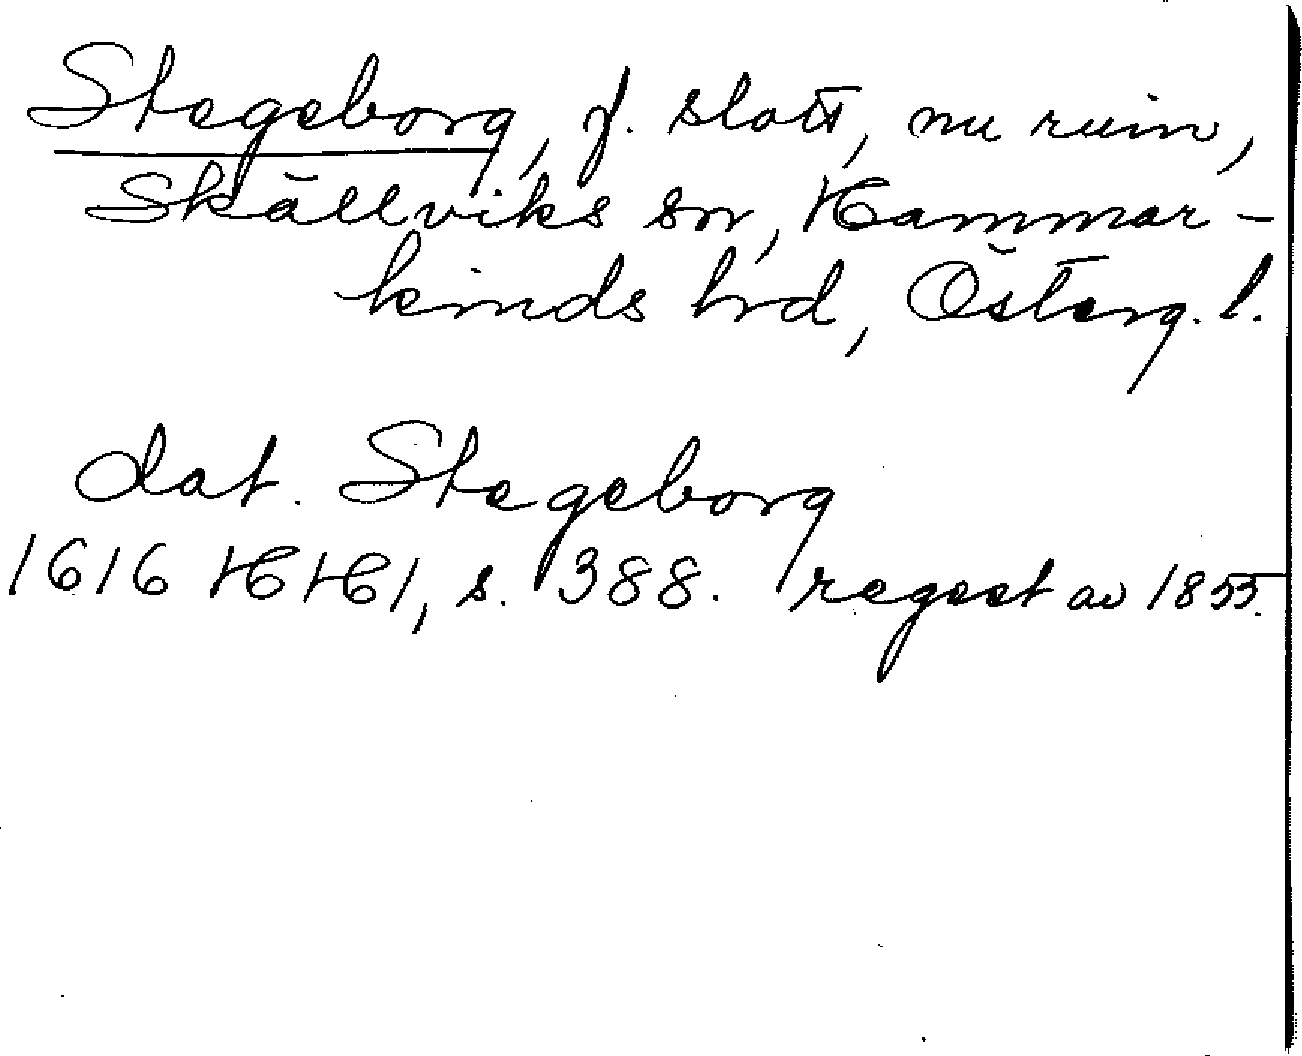 Stegeborg, f. slott, nu ruin,
Skällviks sn, Hammar-
kinds hrd, Österg. l.
dat. Stegeborg
1616 HH1, s. 388. regest av 1855.